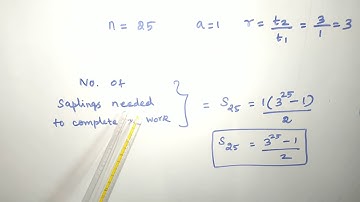 n = 25 a=1 r = t2/t1 = 3/1 = 3
No. of
Saplings needed
to complete work
= S25 = 1(3^25 - 1)/2
S25 = 3^25 - 1/2